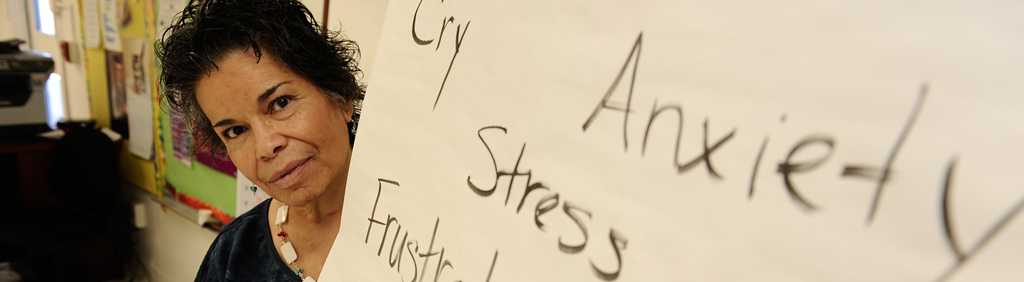 Cry
Anxiety
Stress
Frustrat